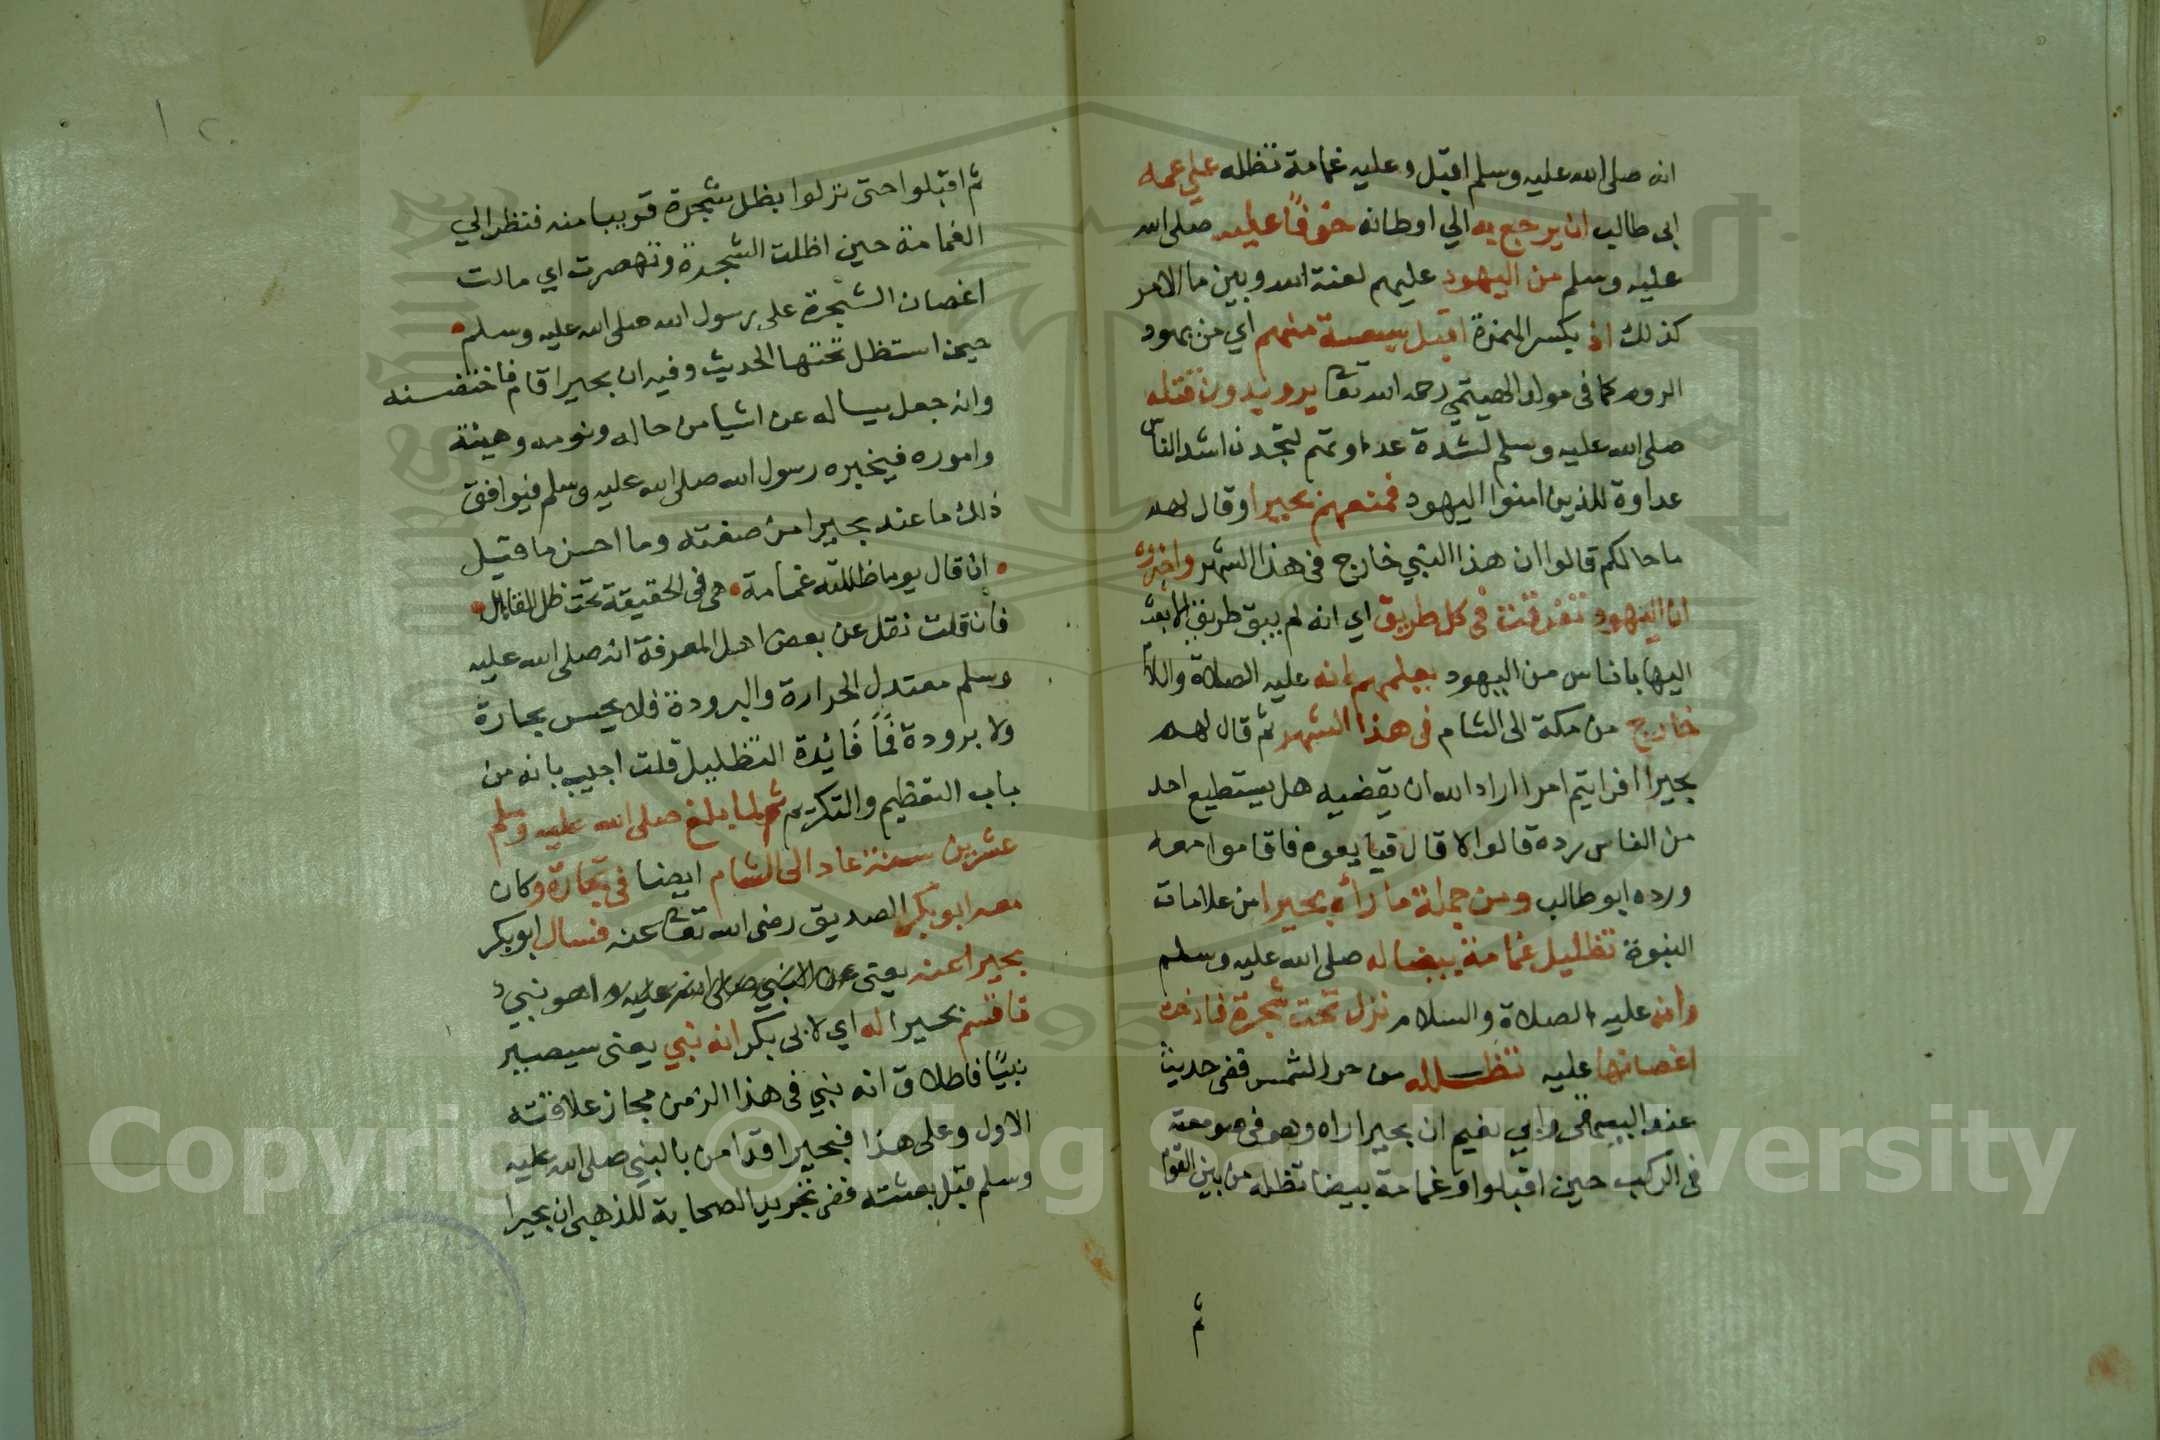 انه صلى الله عليه وسلم اقبل وعليه غمامة تظله على عمه
ابى طالب ان يرجع به الي اوطانه خوفًا عليه صلى الله
عليه وسلم من اليهود عليهم لعنة الله وبين ما الامر
كذلك اذ بكسر الهمزة اقبل سبعة منهم اي من يهود
الروم كما فى مولد الهيتمي رحمه الله تعا يريدون قتله
صلى الله عليه وسلم لشدة عداوتهم لتجدن اشد الناس
عداوة للذين امنوا اليهود فمنعهم بحيرا وقال لهم
ما حالكم قالوا ان هذا النبي خارج فى هذا الشهر واخبروه
ان اليهود تفرقت فى كل طريق اي انه لم يبق طريق الا بعث
اليها باناس من اليهود بعلمهم انه عليه الصلاة والسلام
خارج من مكة الى الشام فى هذا الشهر ثم قال لهم
بحيرا افرايتم امرا اراد الله ان يقضيه هل يستطيع احد
من الناس رده قالوا لا قال فبايعوه فاقاموا معه
ورده ابو طالب ومن جملة ما رأه بحيرا من علامات
النبوة تظليل غمامة بيضا له صلى الله عليه وسلم
وانه عليه الصلاة والسلام نزل تحت شجرة فادخت
اغصانها عليه تظلله من حر الشمس ففى حديث
عند البيهقى وابي نعيم ان بحيرا راه وهو فى صومعته
فى الركب حين اقبلوا وغمامة بيضا تظله من بين القوم
ثم
ثم اقبلوا حتى نزلوا بظل شجرة قريبا منه فنظر الي
الغمامة حين اظلت الشجرة وتهصرت اي مالت
اغصان الشجرة على رسول الله صلى الله عليه وسلم
حين استظل تحتها الحديث وفيه ان بحيرا قام فاحتضنه
وانه جعل يساله عن اشيا من حاله ونومه وهيئة
واموره فيخبره رسول الله صلى الله عليه وسلم فيوافق
ذلك ما عند بحيرا من صفته وما احسن ما قيل
ان قال يوما ظللته غمامة هى فى الحقيقة تحت ظل القائل
فان قلت نقل عن بعض اهل المعرفة انه صلى الله عليه
وسلم معتدل الحرارة والبرودة فلا يحس بحارة
ولا برودة فَمَا فَائدة التظليل قلت اجيب بانه من
باب التعظيم والتكريم ثم لما بلغ صلى الله عليه وسلم
عشرين سنة عاد الى الشام ايضا فى تجارة وكان
معه ابو بكر الصديق رضى الله تعا عنه فسال ابو بكر
بحيرا عنه يعنى عن النبي صلى الله عليه وا هو نبي
فاقسم بحيرا له اي لابى بكر انه نبي يعنى سيصير
نبيًا فاطلاق انه نبي فى هذا الزمن مجاز علاقته
الاول وعلى هذا فبحيرا قد امن بالنبي صلى الله عليه
وسلم قبل بعثته ففى تجريد الصحابة للذهبى ان بحيرا
Copyright © King Saud University
1957